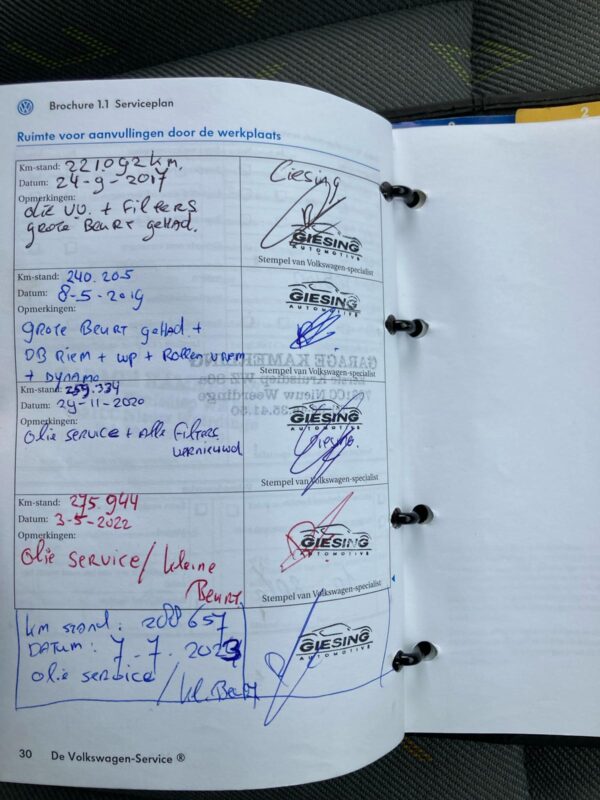 Brochure 1.1 Serviceplan
2
Ruimte voor aanvullingen door de werkplaats
Km-stand: 221.092 km.
Datum: 24-9-2017
Opmerkingen:
olie vv. + Filters
grote Beurt gehad.
Giesing
GIESING
AUTOMOTIVE
Stempel van Volkswagen-specialist
Km-stand: 240.205
Datum: 8-5-2019
Opmerkingen:
grote Beurt gehad +
DB Riem + wp + Rollen vrnm
+ Dynamo
GIESING
AUTOMOTIVE
Stempel van Volkswagen-specialist
GARAGE KAMERLING
Km-stand: 259.334
Datum: 29-11-2020
Opmerkingen:
olie service + Alle Filters
vernieuwd
GIESING
AUTOMOTIVE
Giesing.
Stempel van Volkswagen-specialist
Km-stand: 275.944
Datum: 3-5-2022
Opmerkingen:
olie service / kleine
Beurt.
GIESING
AUTOMOTIVE
Stempel van Volkswagen-specialist
km stand: 288657
DATUM: 7-7-2023
olie service
/ kl. Beurt
GIESING
AUTOMOTIVE
30 De Volkswagen-Service ®